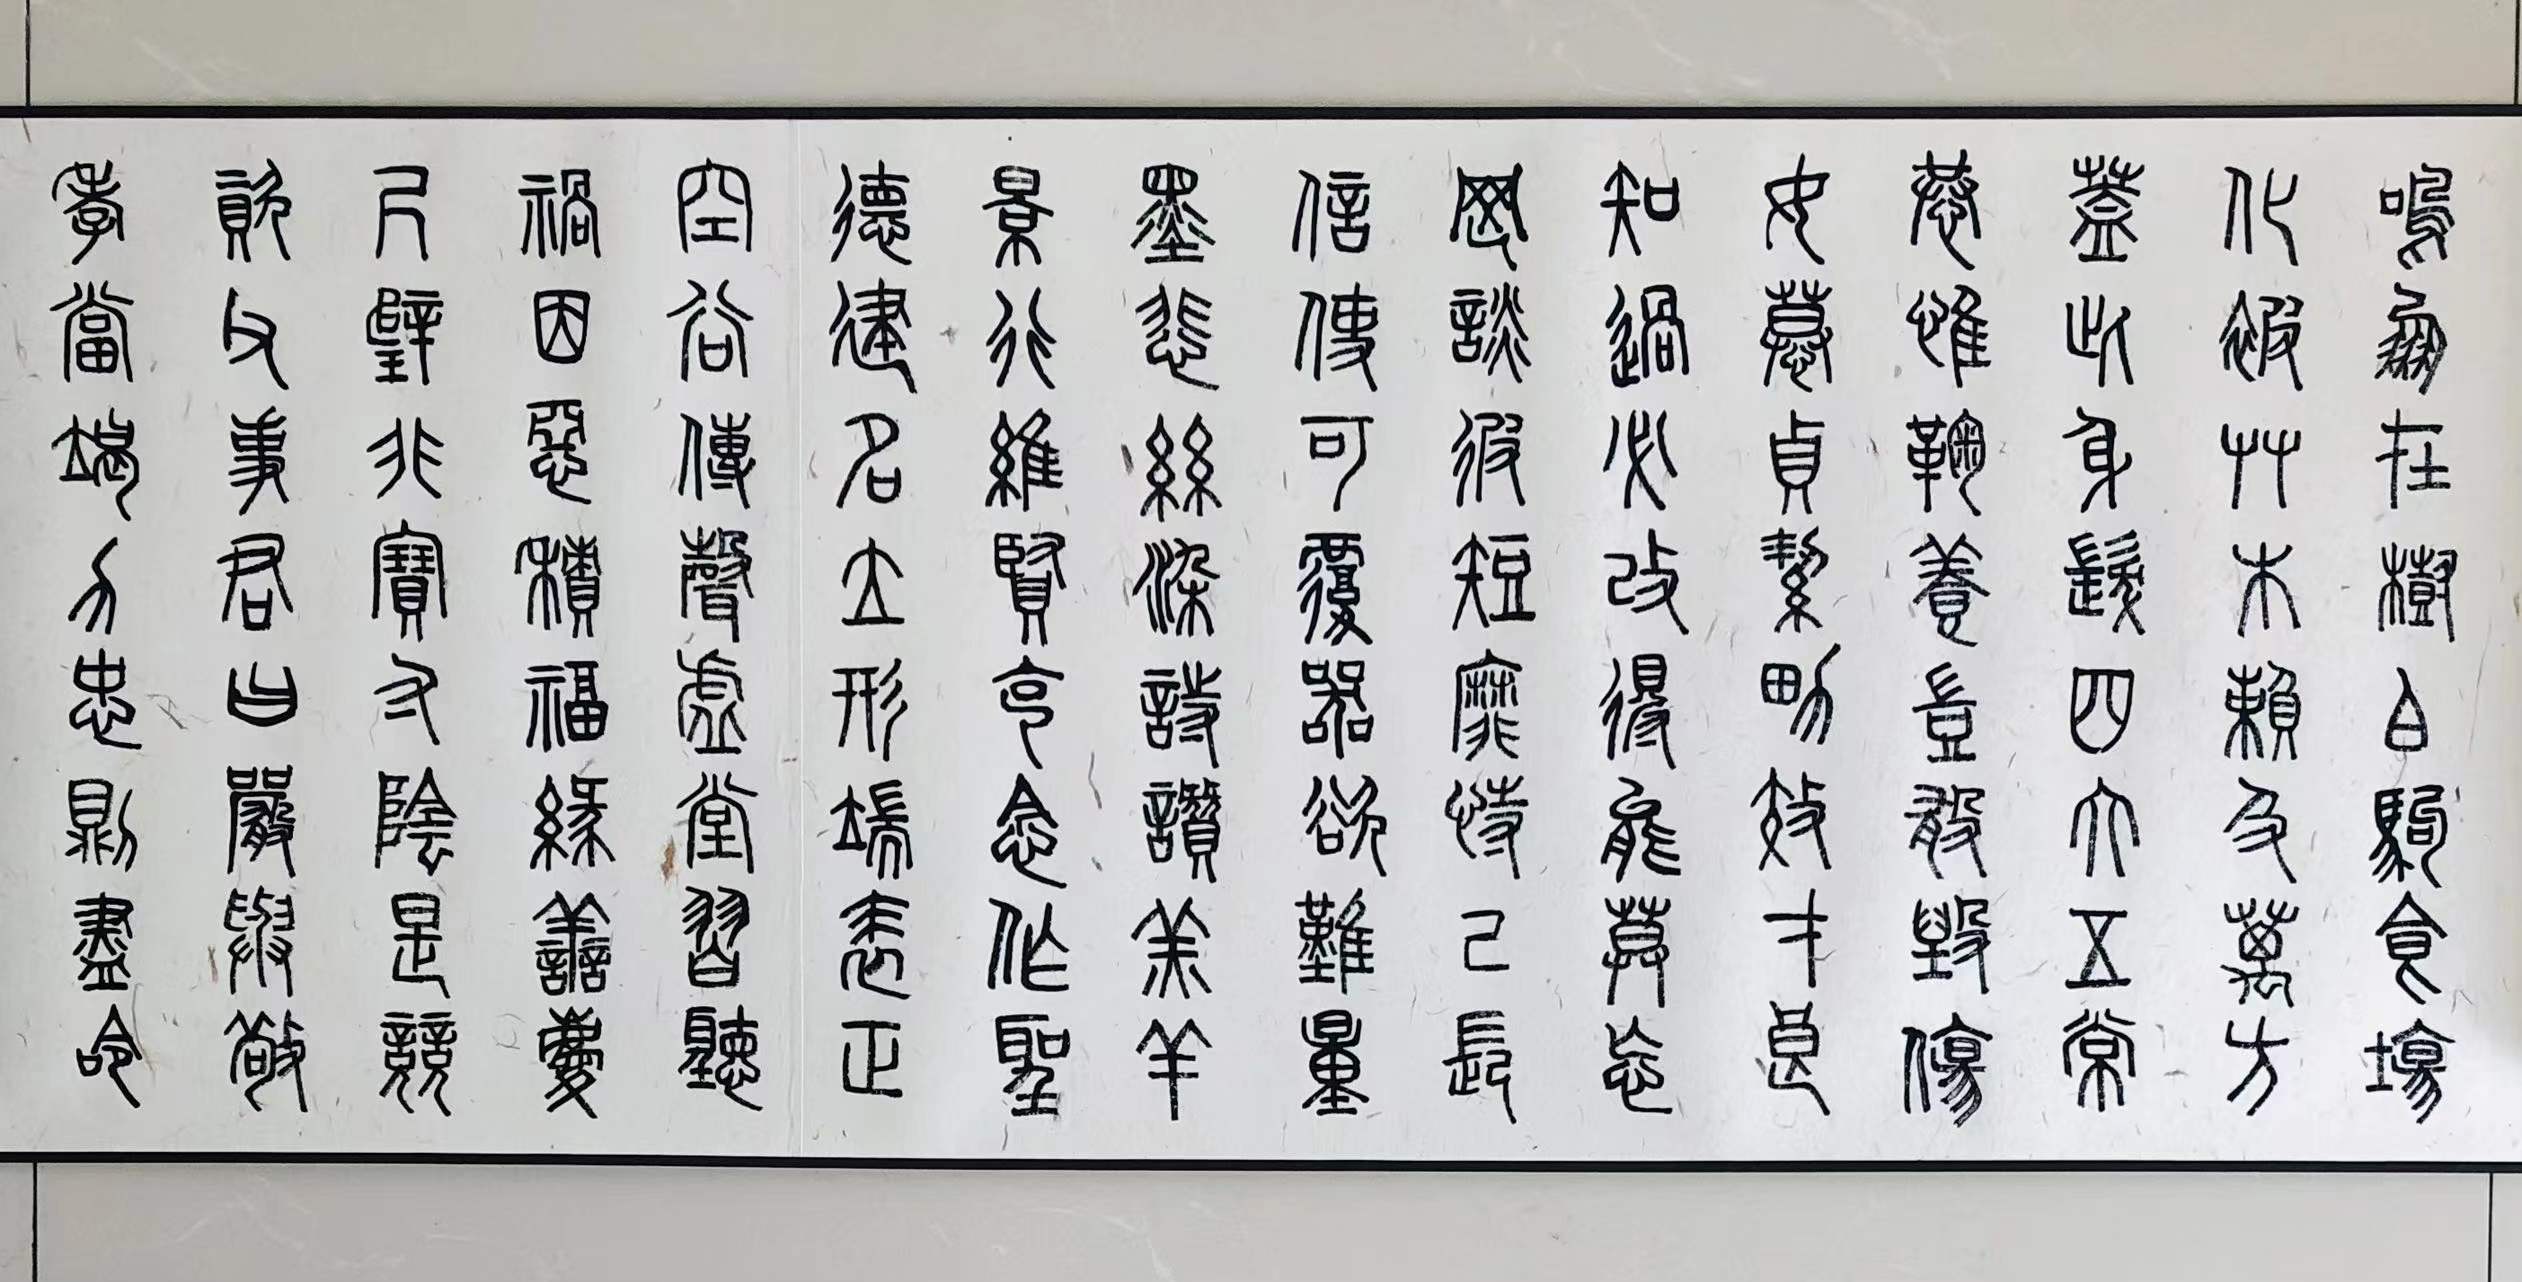 鳴鳳在樹白駒食場
化被艸木賴及萬方
蓋此身髮四大五常
恭惟鞠養豈敢毀傷
女慕貞絜男效才良
知過必改得能莫忘
罔談彼短靡恃己長
信使可覆器欲難量
墨悲絲染詩讚羔羊
景行維賢克念作聖
德建名立形端表正
空谷傳聲虛堂習聽
禍因惡積福緣善慶
尺璧非寶寸陰是競
資父事君曰嚴與敬
孝當竭力忠則盡命